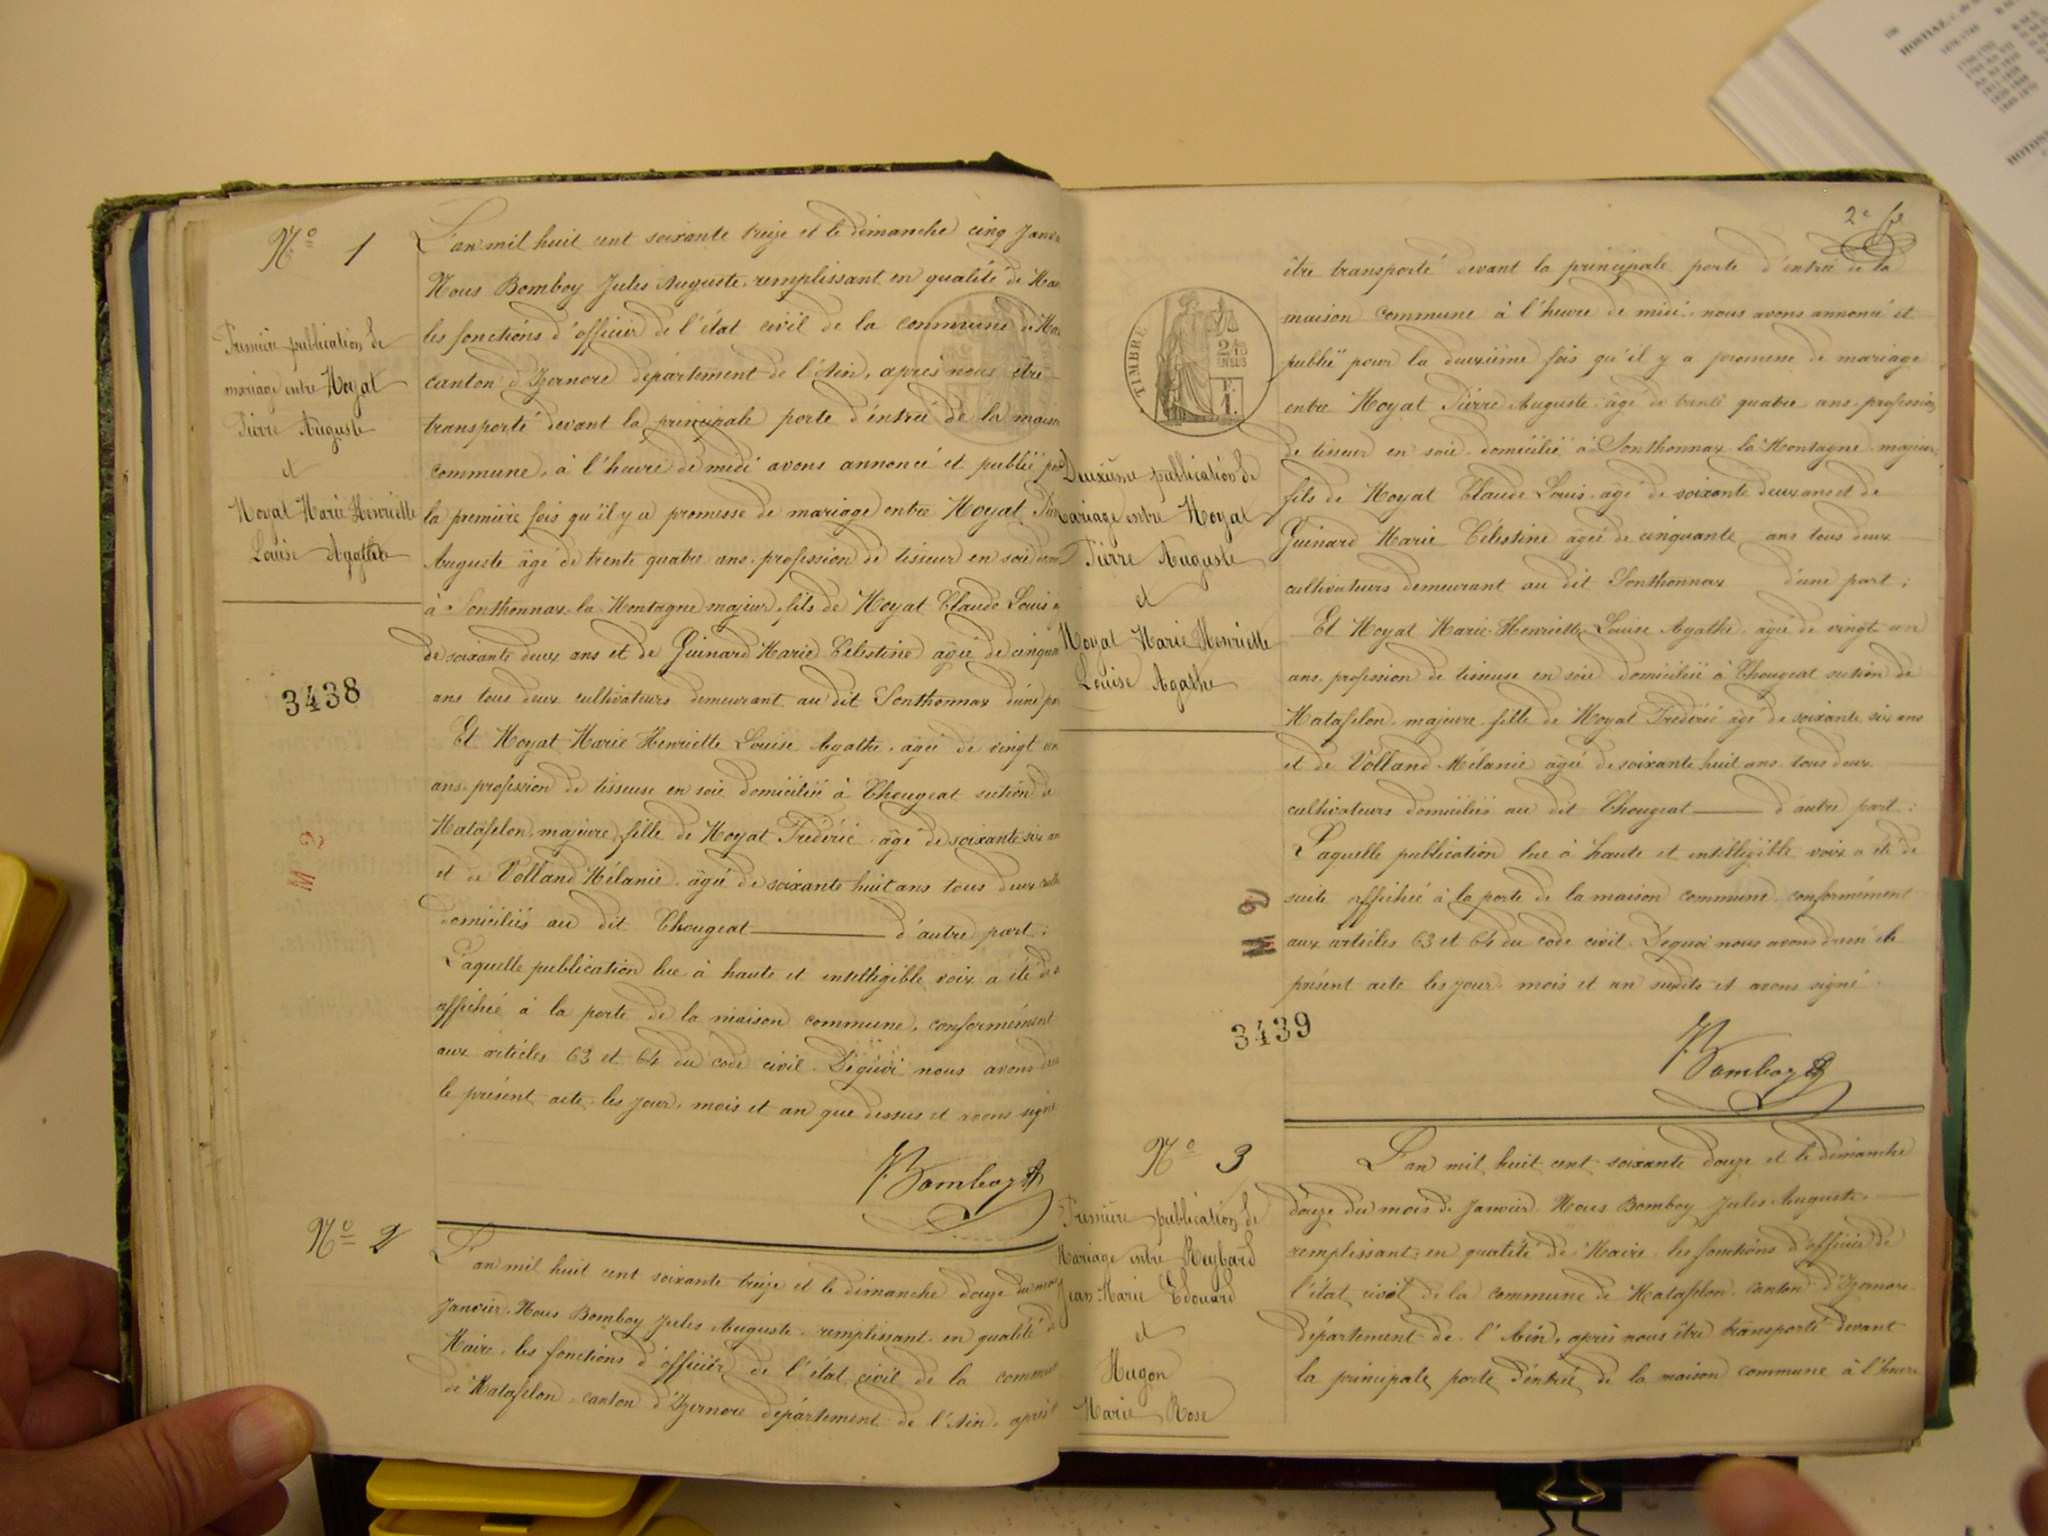 No 1
Première publication de
mariage entre Moyat
Pierre Auguste
et
Moyat Marie Henriette
Louise Agathe
3438
M 2
L'an mil huit cent soixante treize et le dimanche cinq Janv
Nous Bomboy Jules Auguste, remplissant en qualité de Mai
les fonctions d'officier de l'état civil de la commune de Ma
canton d'Izernore département de l'Ain, après nous être
transporté devant la principale porte d'entrée de la maison
commune, à l'heure de midi avons annoncé et publié po
la première fois qu'il y a promesse de mariage entre Moyat Pier
Auguste âgé de trente quatre ans, profession de tisseur en soie dom
à Sonthonnax la Montagne majeur, fils de Moyat Claude Louis a
de soixante deux ans et de Guinard Marie Célestine âgée de cinquan
ans tous deux cultivateurs demeurant au dit Sonthonnax d'une pa
Et Moyat Marie Henriette Louise Agathe, âgée de vingt un
ans profession de tisseuse en soie domiciliée à Chougeat section de
Matafelon, majeure, fille de Moyat Frédéric âgé de soixante six an
et de Volland Mélanie âgée de soixante huit ans tous deux cult
domiciliés au dit Chougeat d'autre part :
Laquelle publication lue à haute et intelligible voix a été de s
affichée à la porte de la maison commune, conformément
aux articles 63 et 64 du code civil. De quoi nous avons dre
le présent acte les jour, mois et an que dessus et avons signé
J. Bomboy
No 2
L'an mil huit cent soixante treize et le dimanche douze du mois
Janvier, Nous Bomboy Jules Auguste, remplissant en qualité de
Maire, les fonctions d'officier de l'état civil de la commune
de Matafelon, canton d'Izernore département de l'Ain, après
2e
TIMBRE
2
être transporté devant la principale porte d'entrée de la
maison commune à l'heure de midi, nous avons annoncé et
publié pour la deuxième fois qu'il y a promesse de mariage
entre Moyat Pierre Auguste âgé de trente quatre ans, profession
de tisseur en soie domicilié à Sonthonnax la Montagne, majeur,
fils de Moyat Claude Louis âgé de soixante deux ans et de
Guinard Marie Célestine âgée de cinquante ans tous deux
cultivateurs demeurant au dit Sonthonnax d'une part :
Et Moyat Marie Henriette Louise Agathe, âgée de vingt un
ans, profession de tisseuse en soie domiciliée à Chougeat section de
Matafelon, majeure, fille de Moyat Frédéric âgé de soixante six ans
et de Volland Mélanie âgée de soixante huit ans tous deux
cultivateurs domiciliés au dit Chougeat d'autre part :
Laquelle publication lue à haute et intelligible voix a été de
suite affichée à la porte de la maison commune, conformément
aux articles 63 et 64 du code civil. De quoi nous avons dressé le
présent acte les jour, mois et an susdits et avons signé.
J. Bomboy
Deuxième publication de
mariage entre Moyat
Pierre Auguste
et
Moyat Marie Henriette
Louise Agathe
M 2
3439
No 3
Première publication de
Mariage entre Reybard
Jean-Marie Edouard
et
Hugon
Marie Rose
L'an mil huit cent soixante douze et le dimanche
douze du mois de Janvier. Nous Bomboy Jules Auguste,
remplissant en qualité de Maire, les fonctions d'officier de
l'état civil de la commune de Matafelon, canton d'Izernore
département de l'Ain, après nous être transporté devant
la principale porte d'entrée de la maison commune à l'heure
HOTON